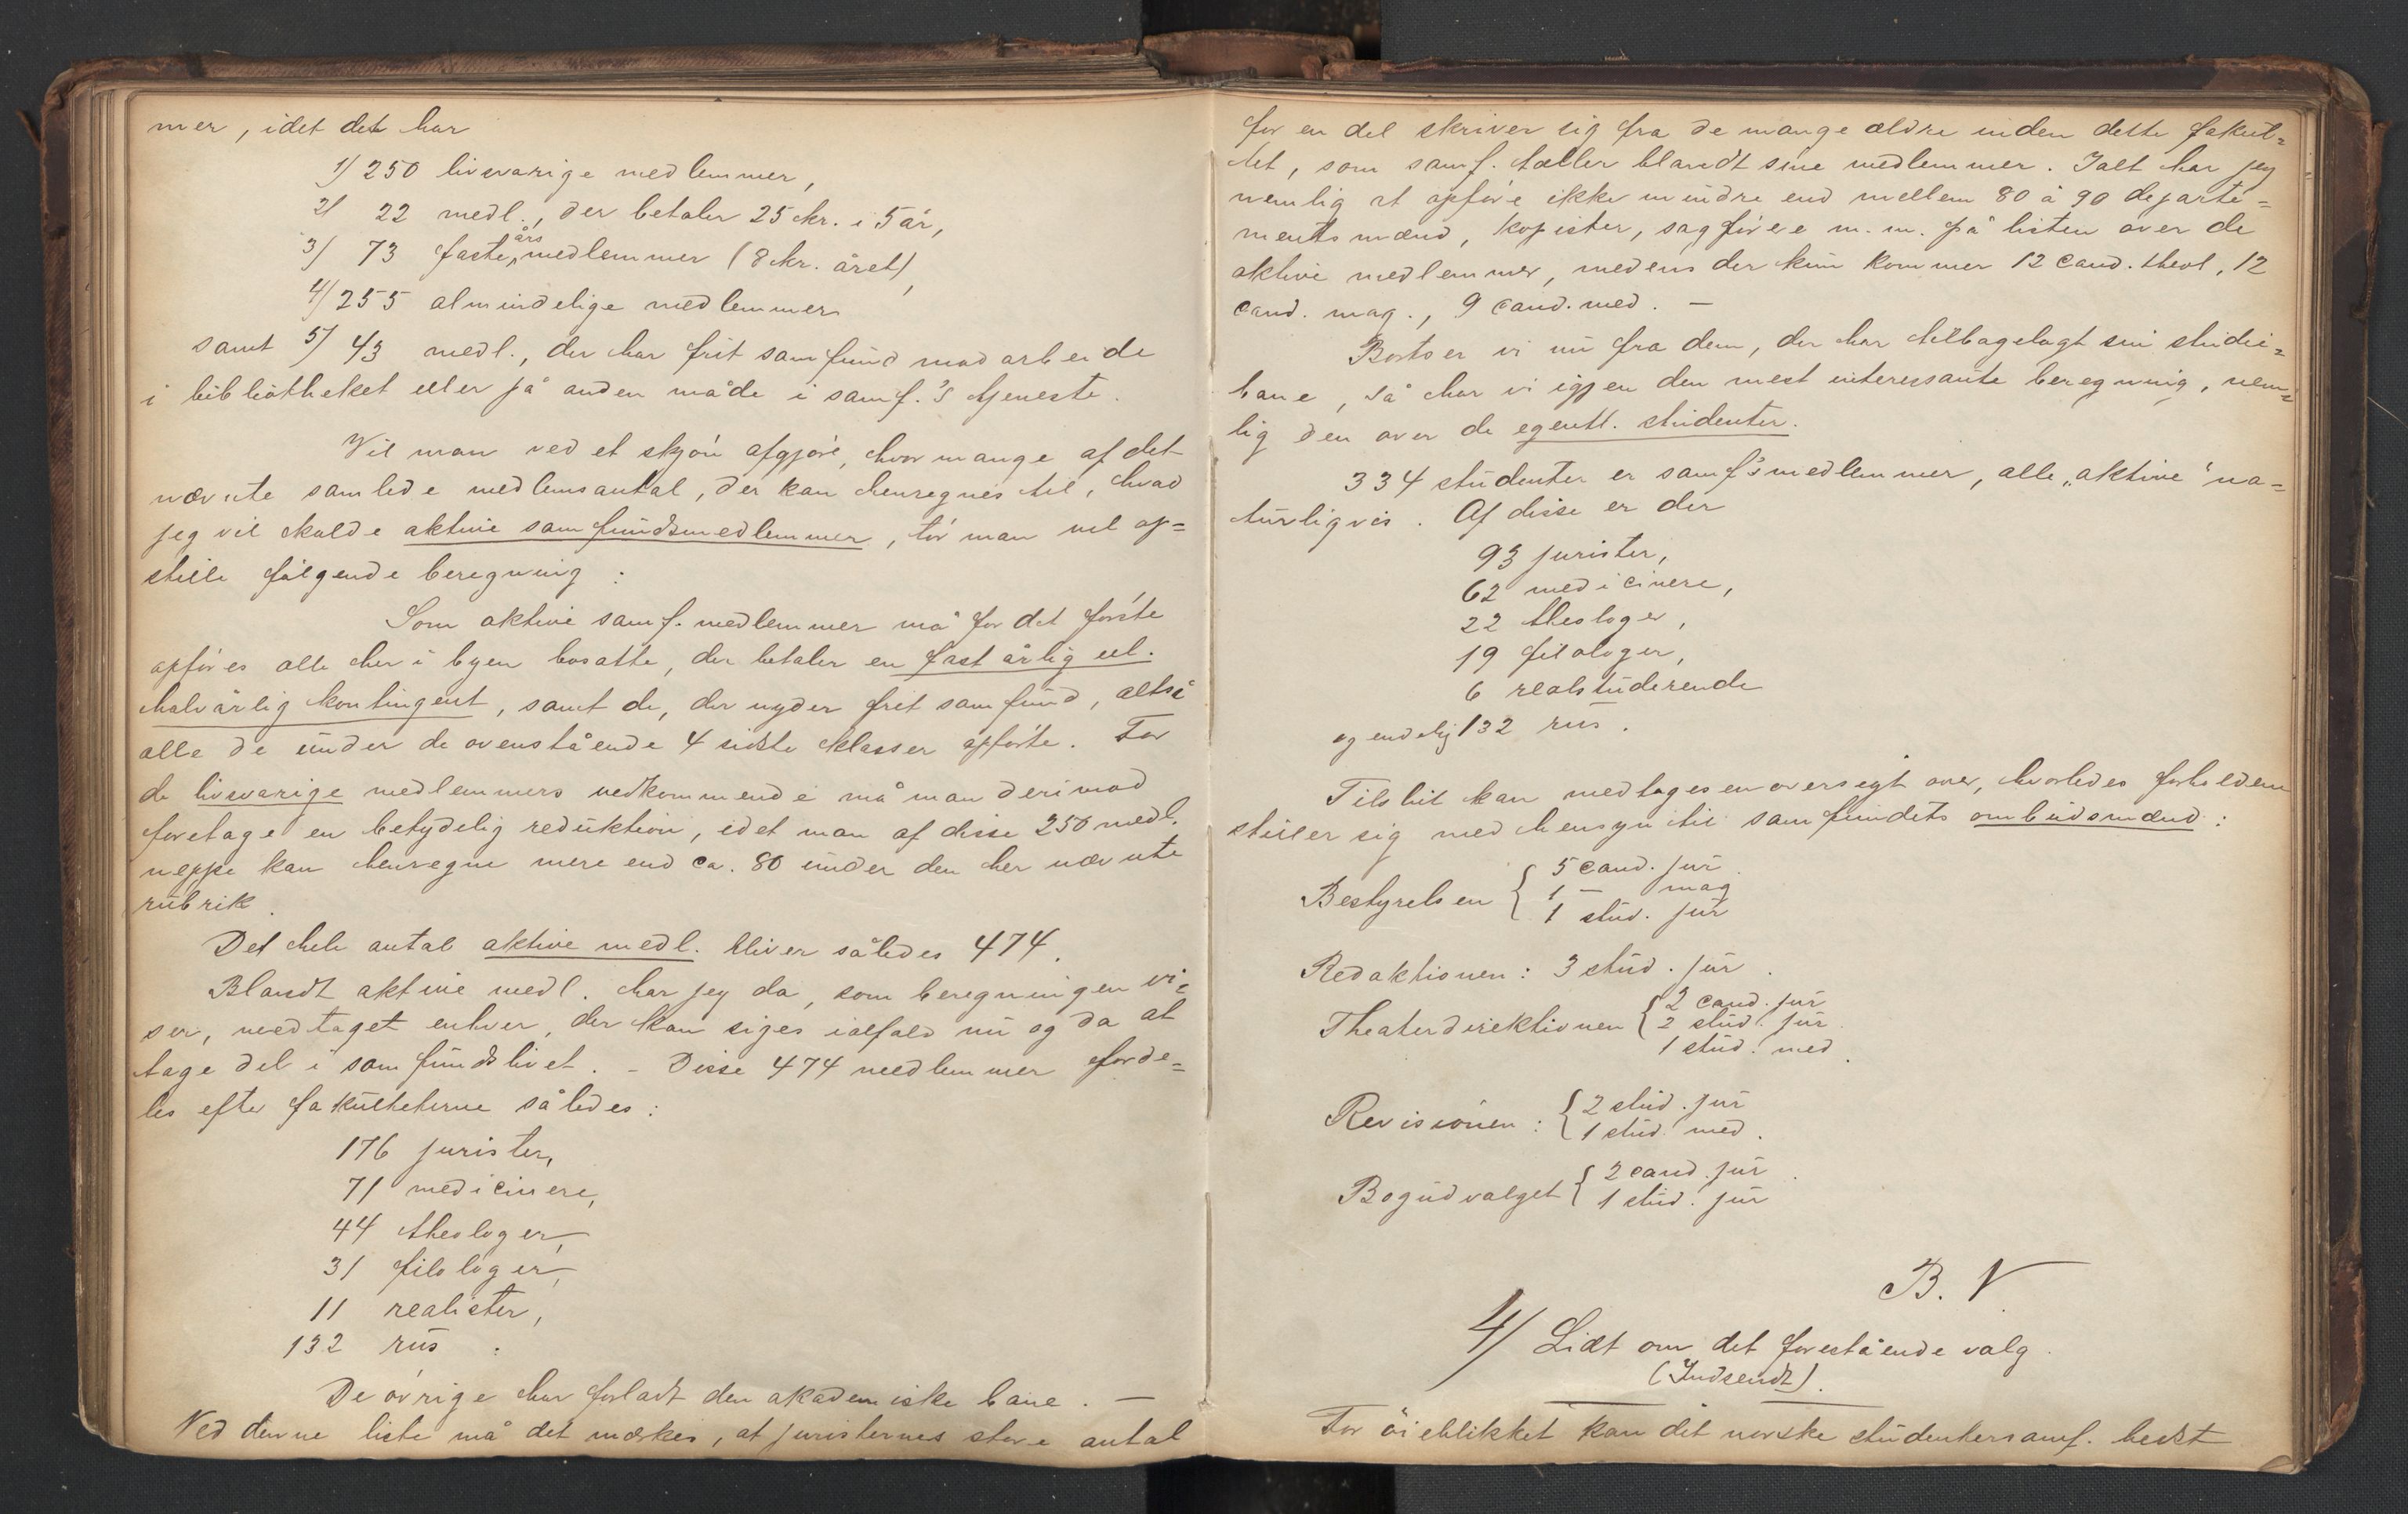 mer, idet det har
1) 250 livsvarige medlemmer,
2) 22 medl., der betaler 25 kr. i 5 år,
3) 73 faste års medlemmer (8 kr. året),
4) 255 almindelige medlemmer
samt 5) 43 medl., der har frit samfund mod arbeide
i bibliotheket eller på anden måde i samf.'s tjeneste.
Vil man ved et skjøn afgjøre, hvor mange af det
nævnte samlede medlemsantal, der kan henregnes til, hvad
jeg vil kalde aktive samfundsmedlemmer, tør man vel op=
stille følgende beregning:
Som aktive samf. medlemmer må for det første
opføres alle her i byen bosatte, der betaler en fast årlig ell.
halvårlig kontingent, samt de, der nyder frit samfund, altså
alle de under de ovenstående 4 sidste klasser opførte. For
de livsvarige medlemmers vedkommende må man derimod
foretage en betydelig reduktion, idet man af disse 250 medl.
neppe kan henregne mere end ca. 80 under den her nævnte
rubrik.
Det hele antal aktive medl. bliver således 474.
Blandt aktive medl. har jeg da, som beregningen vi=
ser, medtaget enhver, der kan siges ialfald nu og da at
tage del i samfundslivet. - Disse 474 medlemmer forde=
les efter fakulteterne således:
176 jurister,
71 medicinere,
44 theologer,
31 filologer,
11 realister,
132 rus.
De øvrige har forladt den akademiske bane. —
Ved denne liste må det mærkes, at juristernes store antal
for en del skriver sig fra de mange ældre inden dette fakul=
tet, som samf. tæller blandt sine medlemmer. Ialt har jeg
nemlig at opføre ikke mindre end mellem 80 à 90 departe=
mentsmænd, kopister, sagførere m. m. på listen over de
aktive medlemmer, medens der kun kommer 12 cand. theol, 12
cand. mag., 9 cand. med. —
Bortser vi nu fra dem, der har tilbagelagt sin studie=
bane, så har vi igjen den mest interessante beregning, nem=
lig den over de egentl. studenter.
334 studenter er samf's medlemmer, alle „aktive“ na=
turligvis. Af disse er der
93 jurister,
62 medicinere,
22 theologer,
19 filologer,
6 realstuderende
og endelig 132 rus.
Tilslut kan medtages en oversigt over, hvorledes forholdene
stiller sig med hensyn til samfundets ombudsmænd:
Bestyrelsen { 5 cand. jur.
1 — mag
1 stud. jur
Redaktionen: 3 stud. jur.
Theaterdirektionen { 2 cand. jur
2 stud. jur
1 stud. med.
Revisionen: { 2 stud. jur
1 stud. med.
Bogudvalget { 2 cand. jur.
1 stud. jur
B. V.
4/ Lidt om det forestående valg.
(Indsendt).
For øieblikket kan det norske studentersamf. bedst